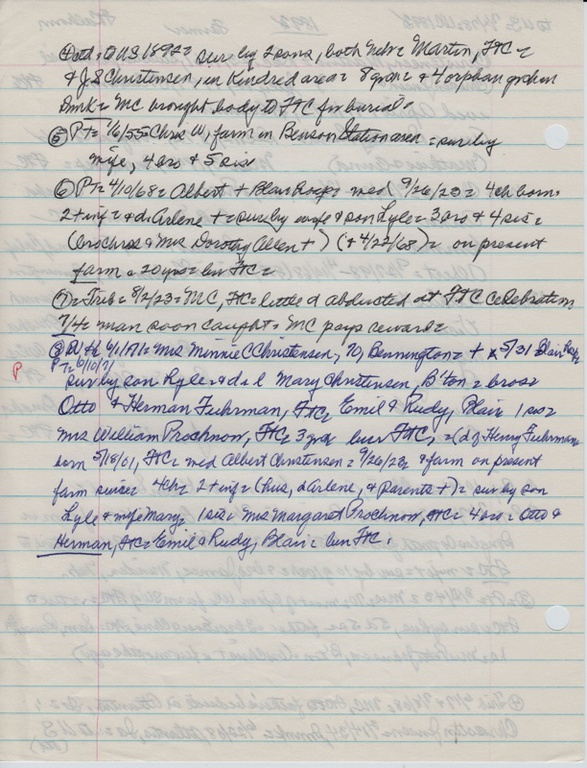 (ctd) to US 1892 = sur by 2 sons, both Nebr = Martin, FtC =
& J.S. Christensen, in Kindred area = 8 gch = & 4 orphan gchn
Dmk = MC brought body to FtC for burial =
⑤ PT = 1/6/55 = Chris W, farm in Benson Station area = sur by
wife, 4 bro & 5 sis
⑥ PT = 4/10/68 = Albert + Blair Hosp = med 9/26/23 = 4 ch born
2 + inf = & d Arlene + = sur by wife & son Lyle = 3 bro & 4 sis =
(bro Chris & Mrs Dorothy Allen +) (+ 4/22/68) = on present
farm = 20 yrs = bur FtC =
⑦ = Trib = 8/2/23 = MC, FtC = little d abducted at FtC celebration
7/4 = man soon caught = MC pays reward =
⑧ 6/1/71 = Mrs Minnie C Christensen, 70, Bennington = + 5/31 Blair Hosp
P PT = 6/10/71
sur by son Lyle = & d-i-l Mary Christensen, B'ton = bros =
Otto & Herman Fuhrman, FtC, Emil & Rudy, Blair 1 sis =
Mrs William Prochnow, FtC = 3 gch bur FtC, = (d of Henry Fuhrman
born 5/18/01, FtC = med Albert Christensen = 9/26/23 = & farm on present
farm since = 4 ch = 2 + inf = (hus, d Arlene, & parents +) = sur by son
Lyle & wife Mary = 1 sis = Mrs Margaret Prochnow, FtC = 4 bro = Otto &
Herman, FtC = Emil & Rudy, Blair = bur FtC.